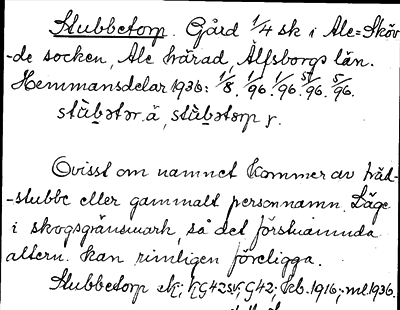 Stubbetorp. Gård 1/4 sk i Ale=Sköv
-de socken, Ale härad, Älfsborgs län.
Hemmansdelar 1936: 1/8. 1/96. 1/96. 5/96. 5/96.
stùbətər ä, stùbətorp y.
Ovisst om namnet kommer av träd-
-stubbe eller gammalt personnamn. Läge
i skogsgränsmark, så det förstnämnda
altern. kan rimligen föreligga.
Stubbetorp G42; kb. 1916; ml 1936.